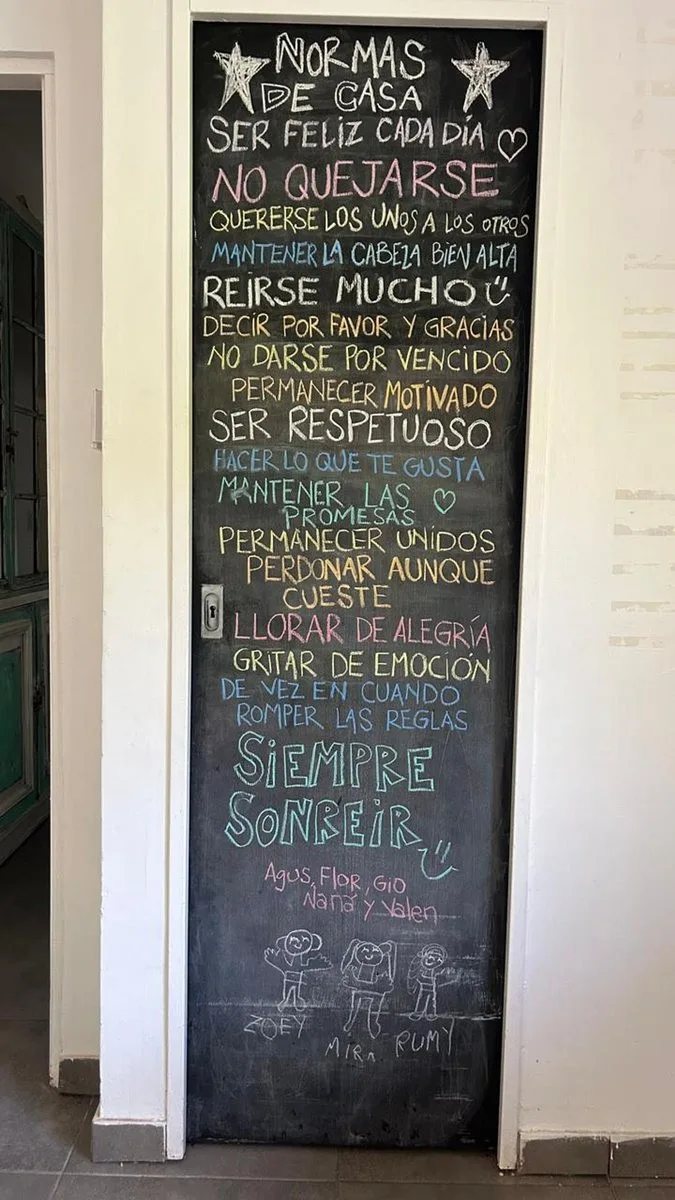 NORMAS
DE CASA
SER FELIZ CADA DÍA
NO QUEJARSE
QUERERSE LOS UNOS A LOS OTROS
MANTENER LA CABEZA BIEN ALTA
REIRSE MUCHO
DECIR POR FAVOR Y GRACIAS
NO DARSE POR VENCIDO
PERMANECER MOTIVADO
SER RESPETUOSO
HACER LO QUE TE GUSTA
MANTENER LAS
PROMESAS
PERMANECER UNIDOS
PERDONAR AUNQUE
CUESTE
LLORAR DE ALEGRÍA
GRITAR DE EMOCIÓN
DE VEZ EN CUANDO
ROMPER LAS REGLAS
SIEMPRE
SONREIR
Agus, Flor, Gio
Naná y Valen
ZOEY
MIRA RUMY